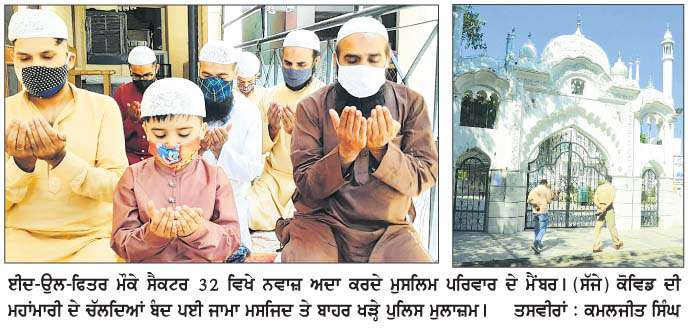 ਈਦ-ਉਲ-ਫਿਤਰ ਮੌਕੇ ਸੈਕਟਰ 32 ਵਿਖੇ ਨਵਾਜ਼ ਅਦਾ ਕਰਦੇ ਮੁਸਲਿਮ ਪਰਿਵਾਰ ਦੇ ਮੈਂਬਰ। (ਸੱਜੇ) ਕੋਵਿਡ ਦੀ
ਮਹਾਂਮਾਰੀ ਦੇ ਚੱਲਦਿਆਂ ਬੰਦ ਪਈ ਜਾਮਾ ਮਸਜਿਦ ਤੇ ਬਾਹਰ ਖੜ੍ਹੇ ਪੁਲਿਸ ਮੁਲਾਜ਼ਮ। ਤਸਵੀਰਾਂ : ਕਮਲਜੀਤ ਸਿੰਘ